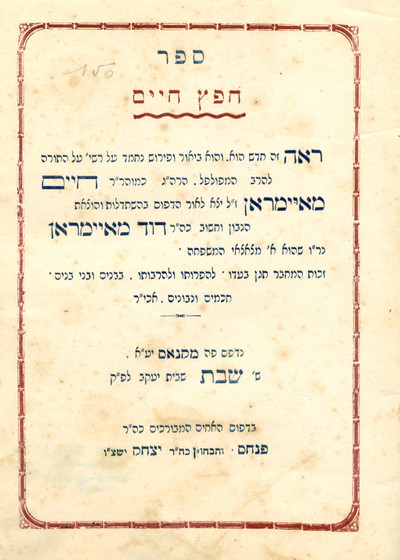 ספר
150
חפץ חיים
ראה זה חדש הוא. והוא ביאור ופירוש נחמד על רש״י על התורה
להרב המפולפל. הרה״ג כמוהר״ר חיים
מאיימראן ז״ל יל״א לאור הדפוס בהשתדלות והולאת
הנבון וחשוב כה״ר דוד מאיימראן
נר״ו שהוא א׳ מלאלאי המשפחה ·
זכות המחבר תגן בעדו · להפרותו ולהרבותו . בבנים ובני בנים ·
חכמים ונבונים . אכי״ר
נדפס פה מקנאם יע״א .
ש׳ שבת שבית יעקב לפ״ק
בדפוס האחים המבורכים כה״ר
פנחס · והבחו״ן כה״ר יצחק ישצ״ו